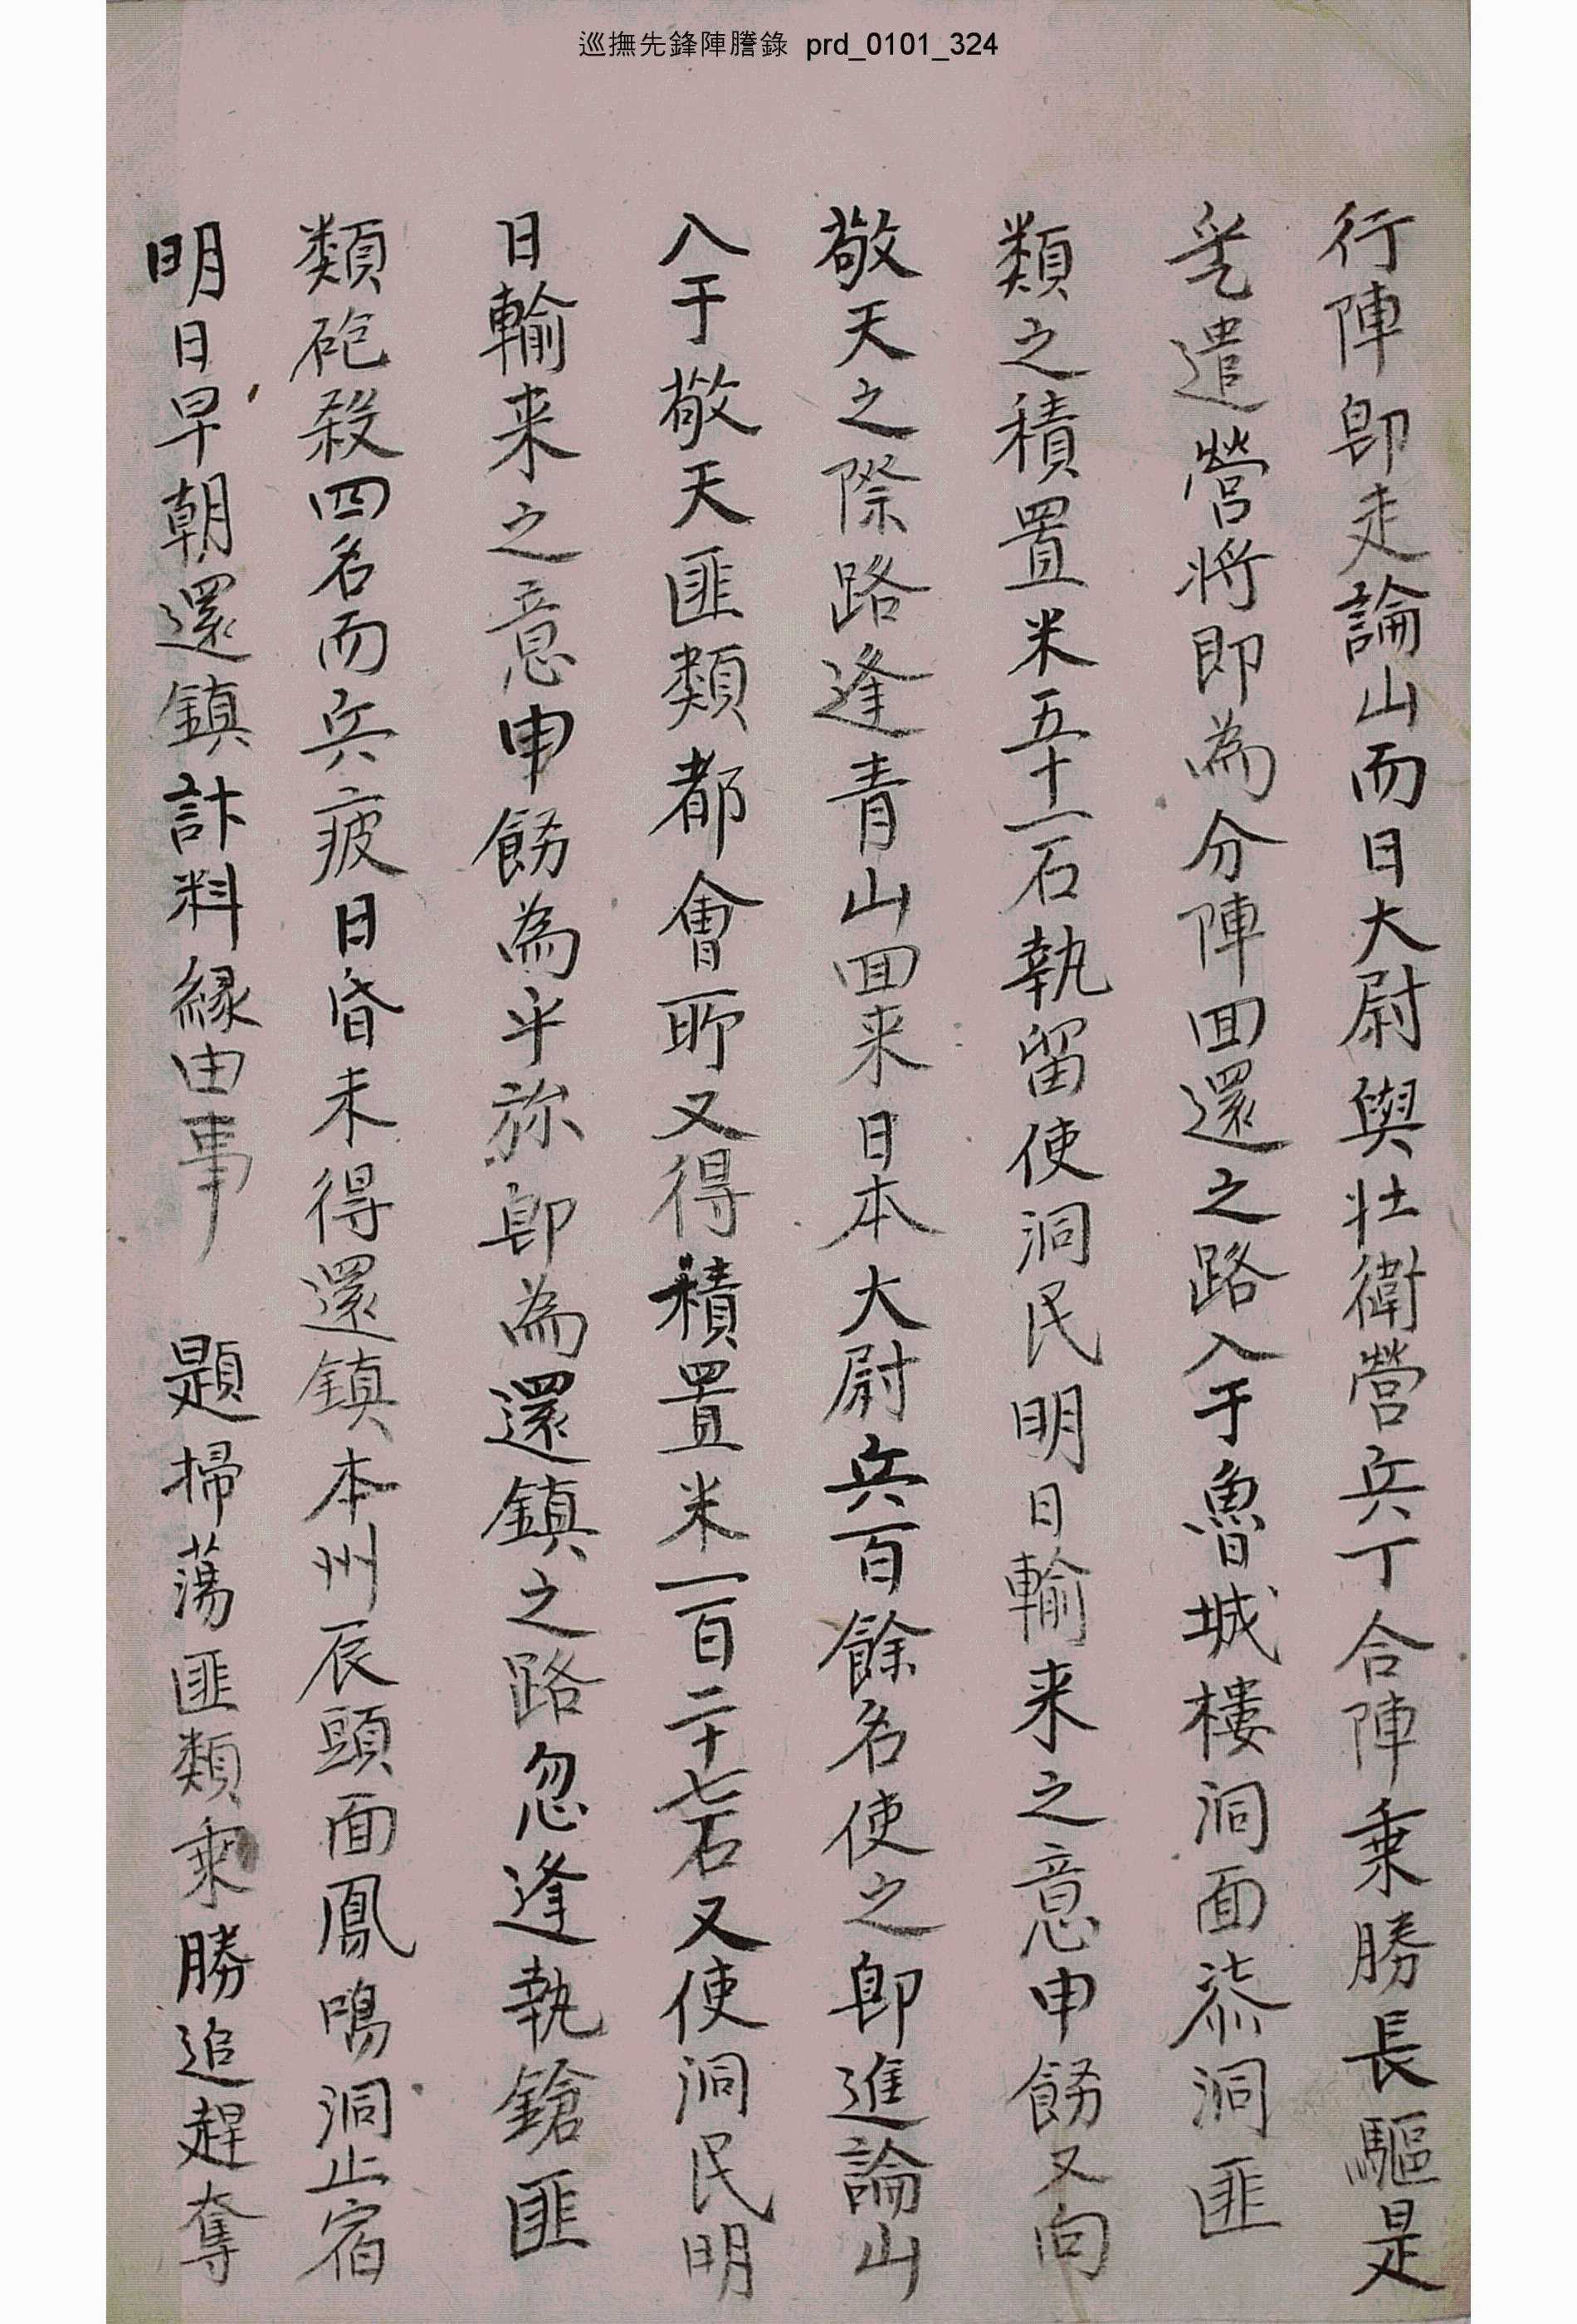 巡撫先鋒陣謄錄 prd_0101_324
行陣卽走論山而日大尉與壯衛營兵丁合陣乘勝長驅是
乎遣營將即為分陣回還之路入于魯城樓洞面柒洞匪
類之積置米五十一石執留使洞民明日輸来之意申飭又向
敬天之際路逢青山回来日本大尉兵百餘名使之卽進論山
入于敬天匪類都會所又得積置米一百二十七石又使洞民明
日輸来之意申飭為乎旀卽為還鎮之路忽逢執鎗匪
類砲殺四名而兵疲日昏未得還鎮本州辰頭面鳳鳴洞止宿
明日早朝還鎮計料緣由事 題掃蕩匪類乘勝追趕奪